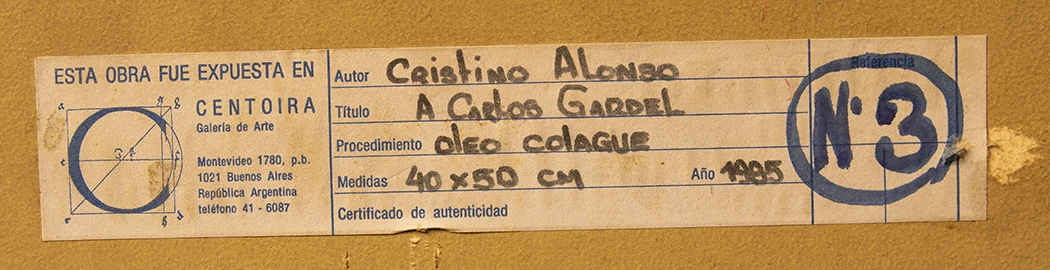 ESTA OBRA FUE EXPUESTA EN
CENTOIRA
Galería de Arte
Montevideo 1780, p.b.
1021 Buenos Aires
República Argentina
teléfono 41 - 6087
Autor CRISTINO ALONSO
Título A CARLOS GARDEL
Procedimiento OLEO COLAGUE
Medidas 40 x 50 CM Año 1985
Certificado de autenticidad
Referencia
Nº 3